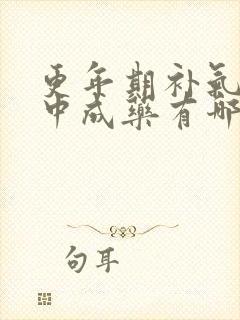 更年期补气
中成药有哪
句耳